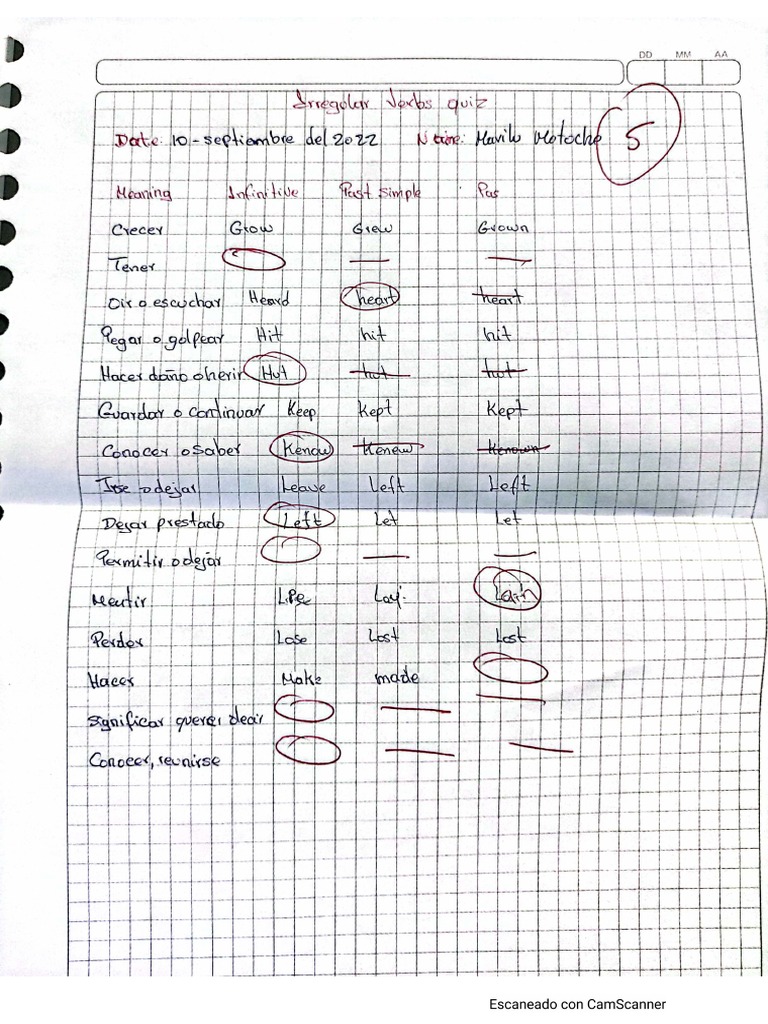 DD MM AA
Irregular Verbs quiz
Date 10-septiembre del 2022 Name: Marilu Motoche 5
Meaning Infinitive Past simple Pas
Crecer Grow Grew Grown
Tener
Oir o escuchar Heard heart heart
Pegar o golpear Hit hit hit
Hacer daño o herir Hut hut hut
Guardar o continuar Keep Kept Kept
Conocer o Saber Kenow Kenew Kenown
Irse o dejar Leave Left Left
Dejar prestado Left Let Let
Permitir o dejar
Mentir Lay Lain
Perder Lose Lost Lost
Hacer Make made
Significar querer decir
Conocer, reunirse
Escaneado con CamScanner